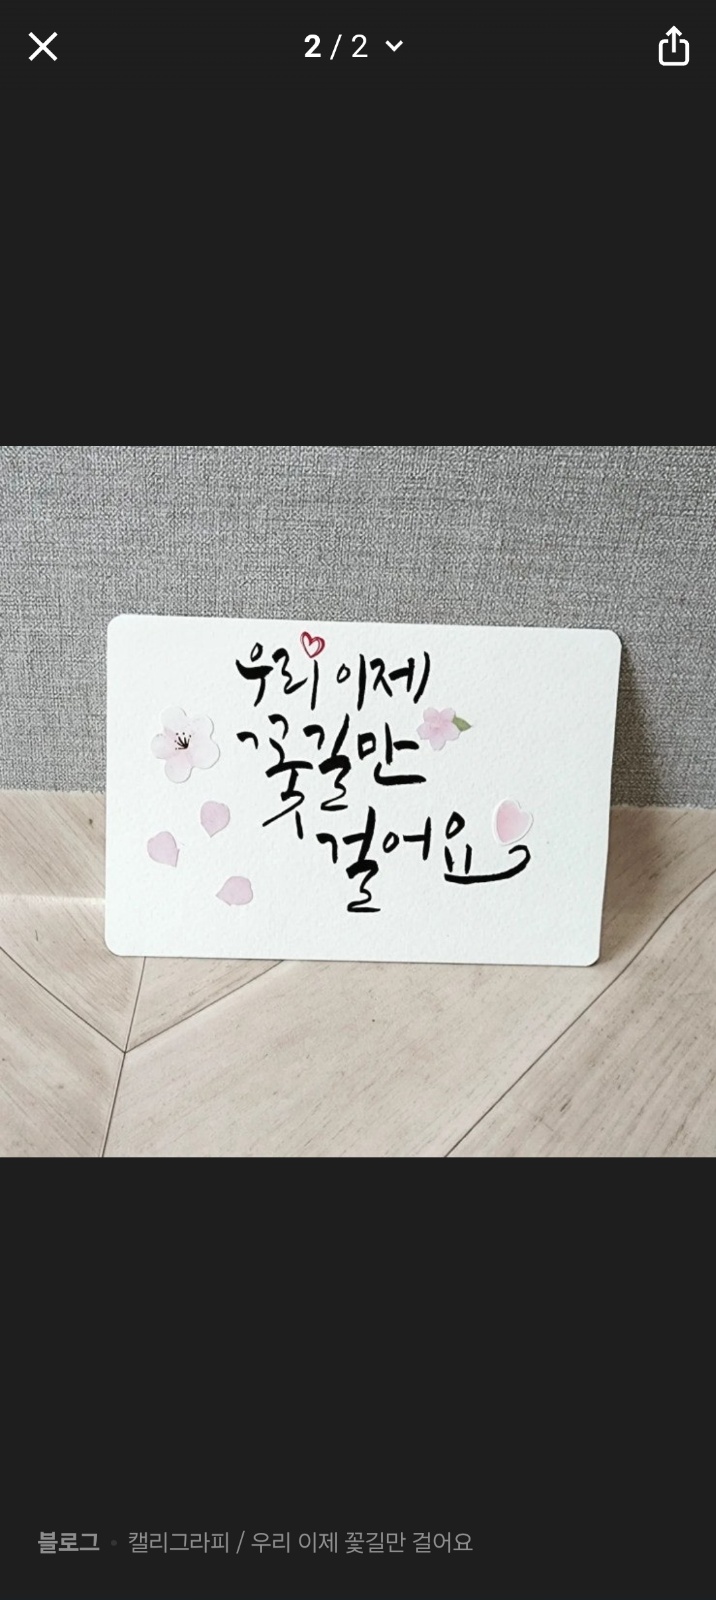 2 / 2
우리 이제
꽃길만
걸어요
블로그 • 캘리그라피 / 우리 이제 꽃길만 걸어요